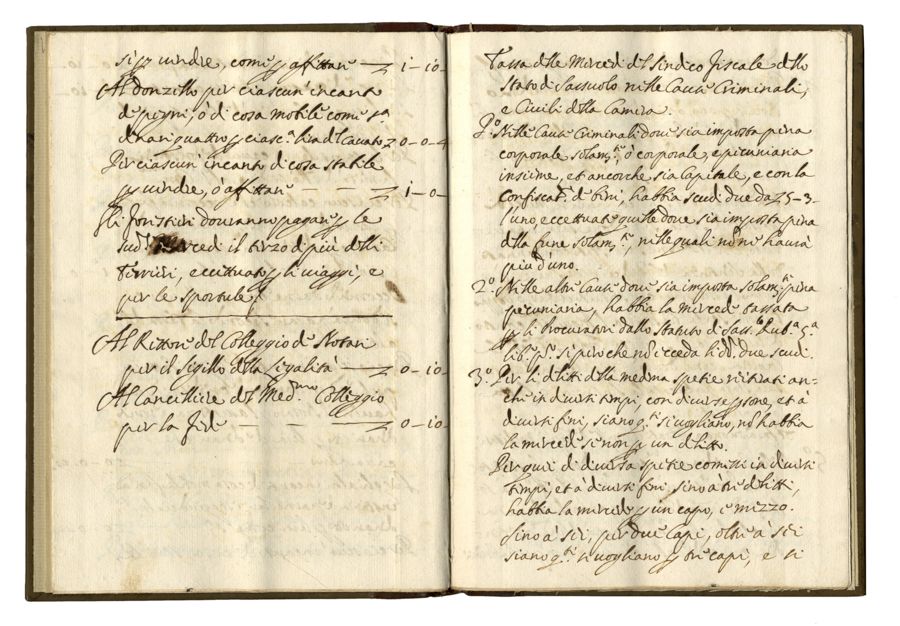 si p vendre, come p affittare — 1-10-
Al Donzello per ciascun incanto
de pegni, ò di cosa mobile come s.ª
denari quattro p ciasc.ª lira del Cavato 0-0-4
Per ciascun incanto di cosa stabile
p vendre, ò affittare — 1-0-
Gli forestieri dovranno pagare p le
sud.e Mercedi il terzo di più delli
Terrieri, eccettuato p li viaggi, e
per le sportule.
Al Rettore del Colleggio de Notari
per il sigillo della legalità — 0-10-
Al Cancelliere del Med.mo Colleggio
per la fede — 0-10-
Tassa delle Mercedi del Sindico Fiscale dello
Stato di Sassuolo nelle Cause Criminali,
e Civili della Camera.
P.º Nelle Cause Criminali dove sia imposta pena
corporale solam.te ò corporale, e pecuniaria
insieme, et ancorche sia Capitale, e con la
confiscat.e de beni, habbia scudi due da 5-3-
l'uno, eccettuate quelle dove sia imposta pena
della fune solam.te, nelle quali nõ ne haurà
più d'uno.
2.º Nelle altre Cause dove sia imposta solam.te pena
pecuniaria, habbia la mercede tassata
p li Procuratori dallo Statuto di Sass.lo Rub.ª 5.ª
lib.º p.º si però che nõ ecceda li d.i due scudi.
3.º Per li delitti della medema spetie reiterati an-
che in diversi tempi, con diverse psone, et à
diversi fini, siano q.ti si vogliano, nõ habbia
la mercede se non p un delitto.
Per quei di diversa spetie comessi in diversi
tempi, et à diversi fini, sino à tre delitti,
habbia la mercede p un capo, e mezzo.
Sino à sei, per due Capi, oltre à sei
siano q.ti si vogliano p tre capi, e si